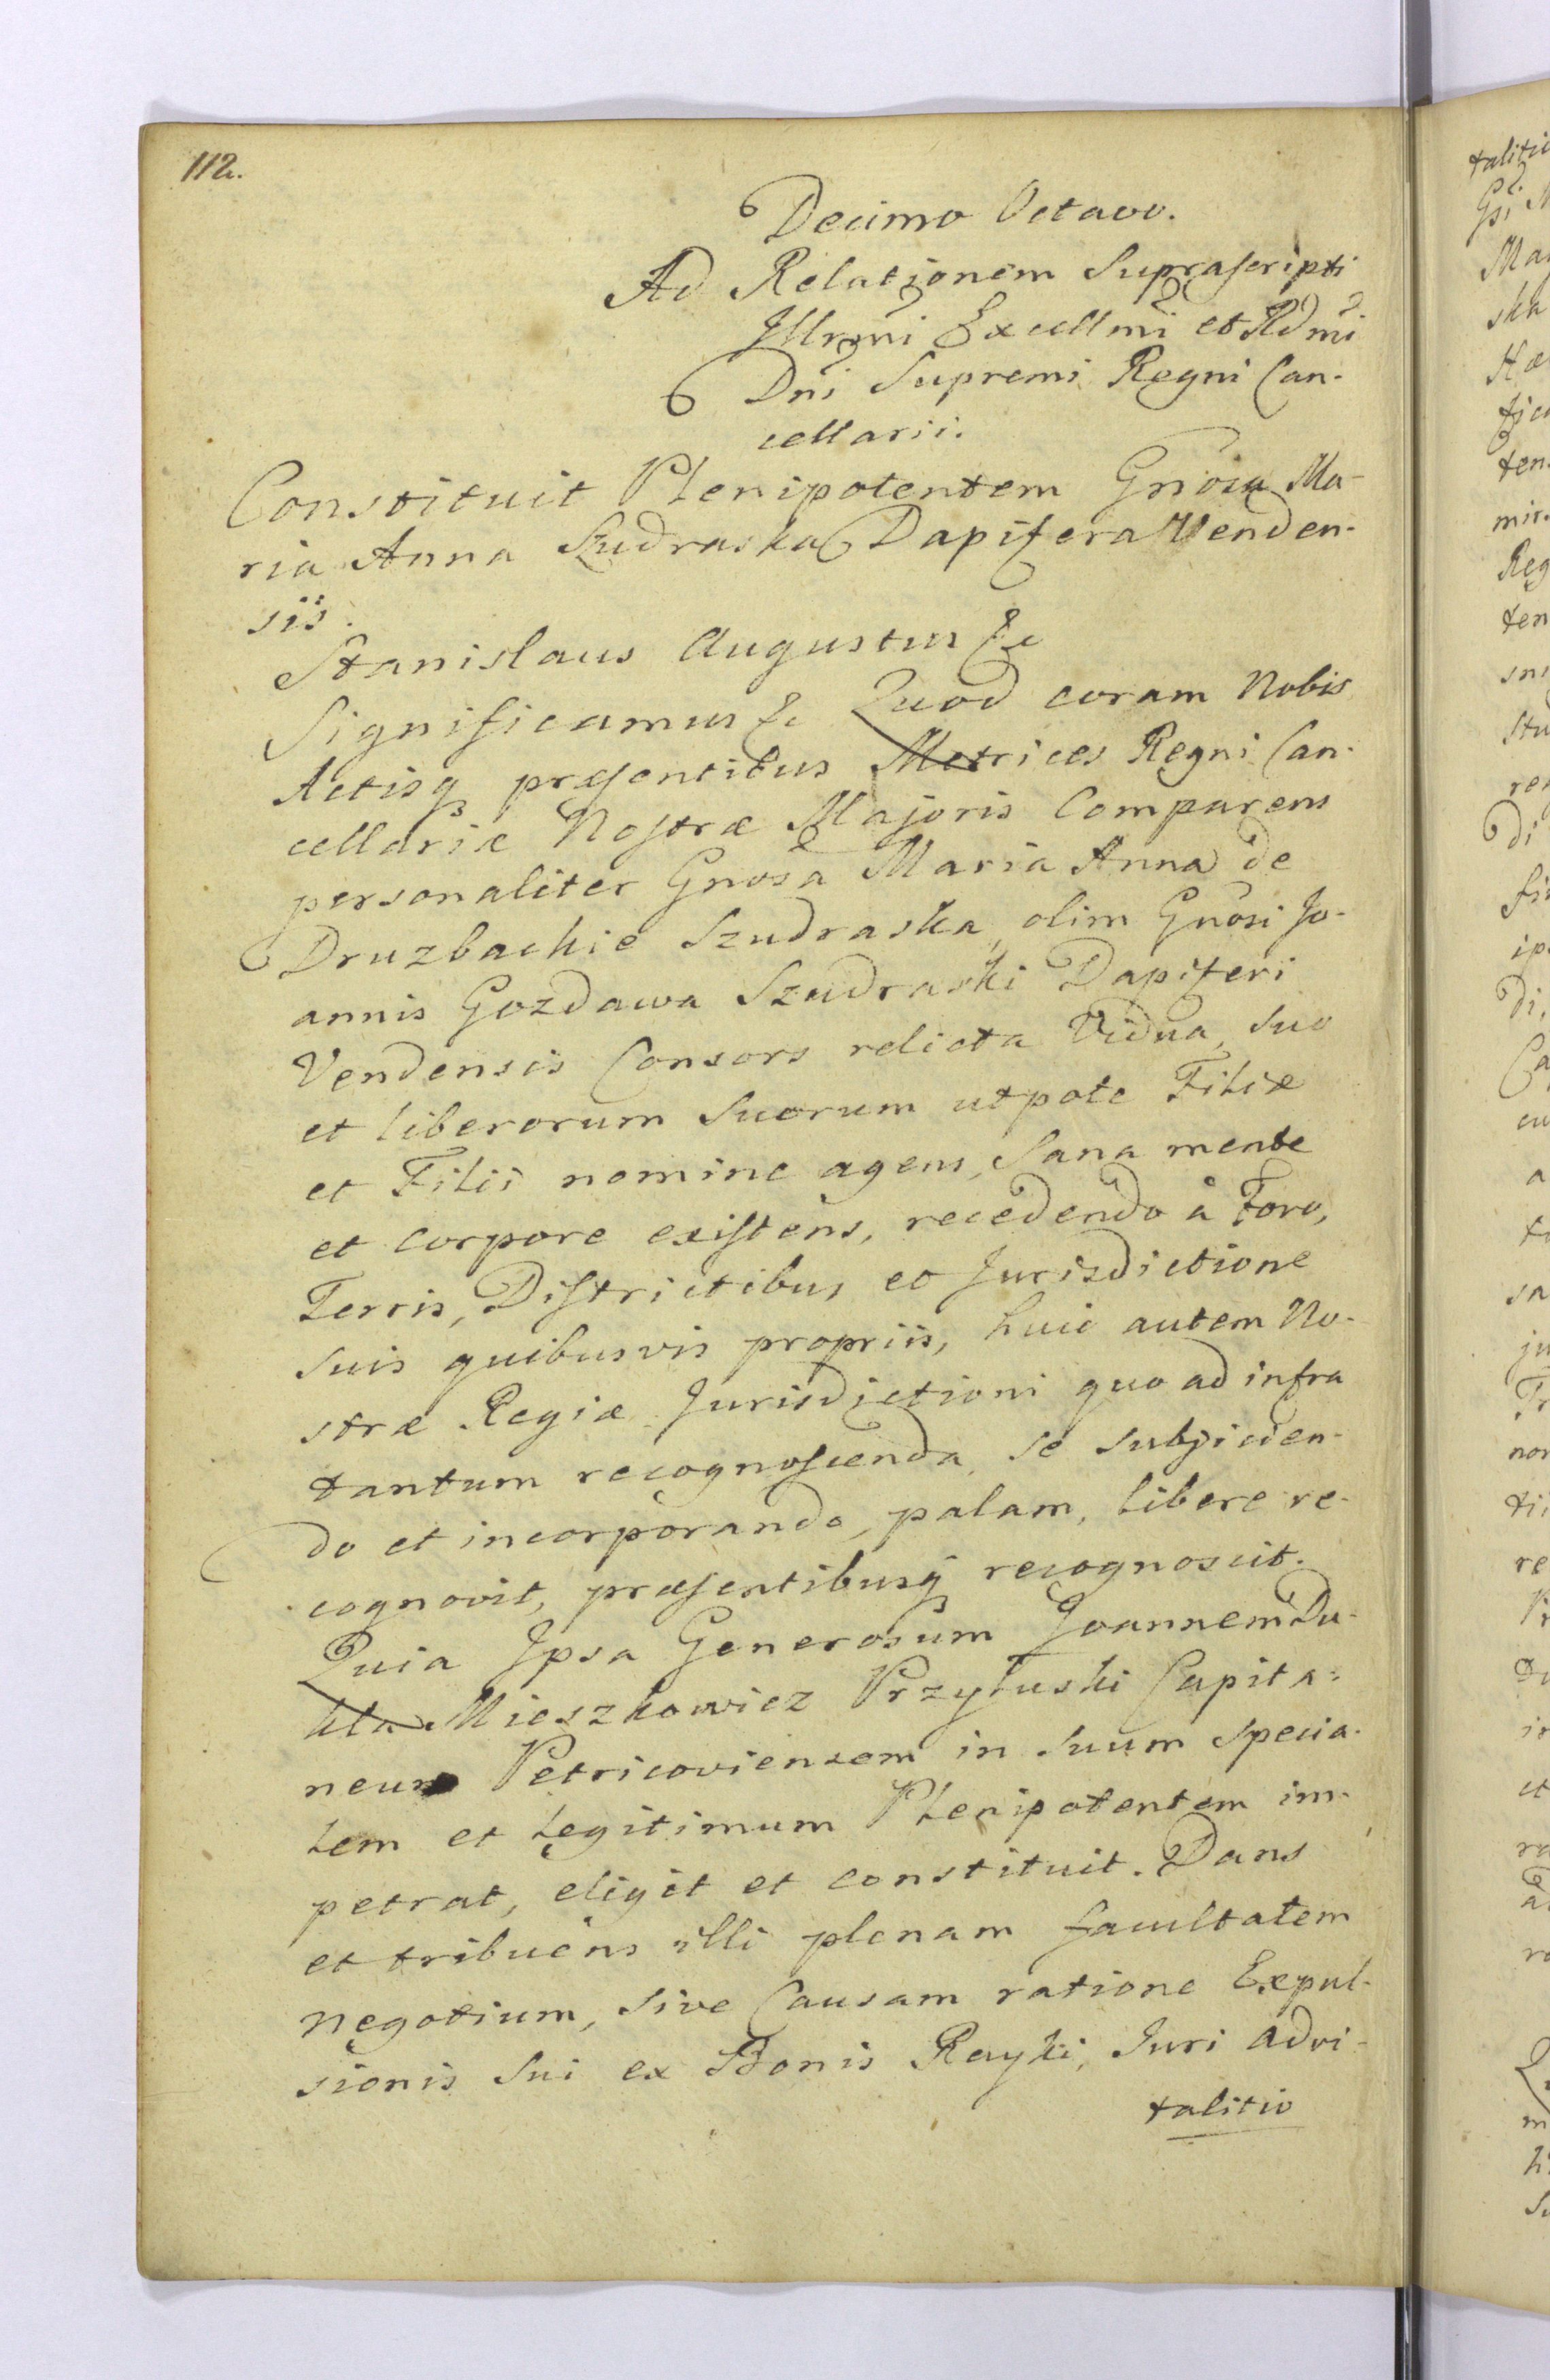 112.
Decimo Octavo.
Ad Relationem Suprascripti
Jllrmi Excellmi et Rdmi
Dni Supremi Regni Can-
cellarii.
Constituit Plenipotentem Gnosa Ma-
ria Anna Szudraska Dapifera Venden-
sis.
Stanislaus Augustus &c
Significamus &c Quod coram Nobis
Actisq præsentibus Metrices Regni Can-
cellariæ Nostræ Majoris Comparens
personaliter Gnosa Maria Anna de
Druzbachie Szudraska, olim Gnosi Jo-
annis Gozdawa Szudraski Dapiferi
Vendensis Consors relicta Vidua, suo
et liberorum Suorum utpote Filiæ
et Filii nomine agens, Sana mente
et corpore existens, recedendo à Foro,
Terris, Districtibus et Jurisdictione
suis quibusvis propriis, huic autem No-
stræ Regiæ Jurisdictioni quo ad infra
tantum recognoscenda se subjicien-
do et incorporando, palam, libere re-
cognovit, præsentibusq recognoscit.
Quia Jpsa Generosum Joannem Du-
kla Mieszkowicz Przyłuski Capita-
neum Petricoviensem in Suum specia-
lem et legitimum Plenipotentem im-
petrat, eligit et constituit. Dans
et tribuens illi plenam facultatem
negotium, sive Causam ratione Expul-
sionis Sui ex Bonis Rayki, Juri advi-
talitio
talitio
Ma
ska
Hæ
ten
mis.
Reg
ten
di
di,
a
ju
non
tii
re
et